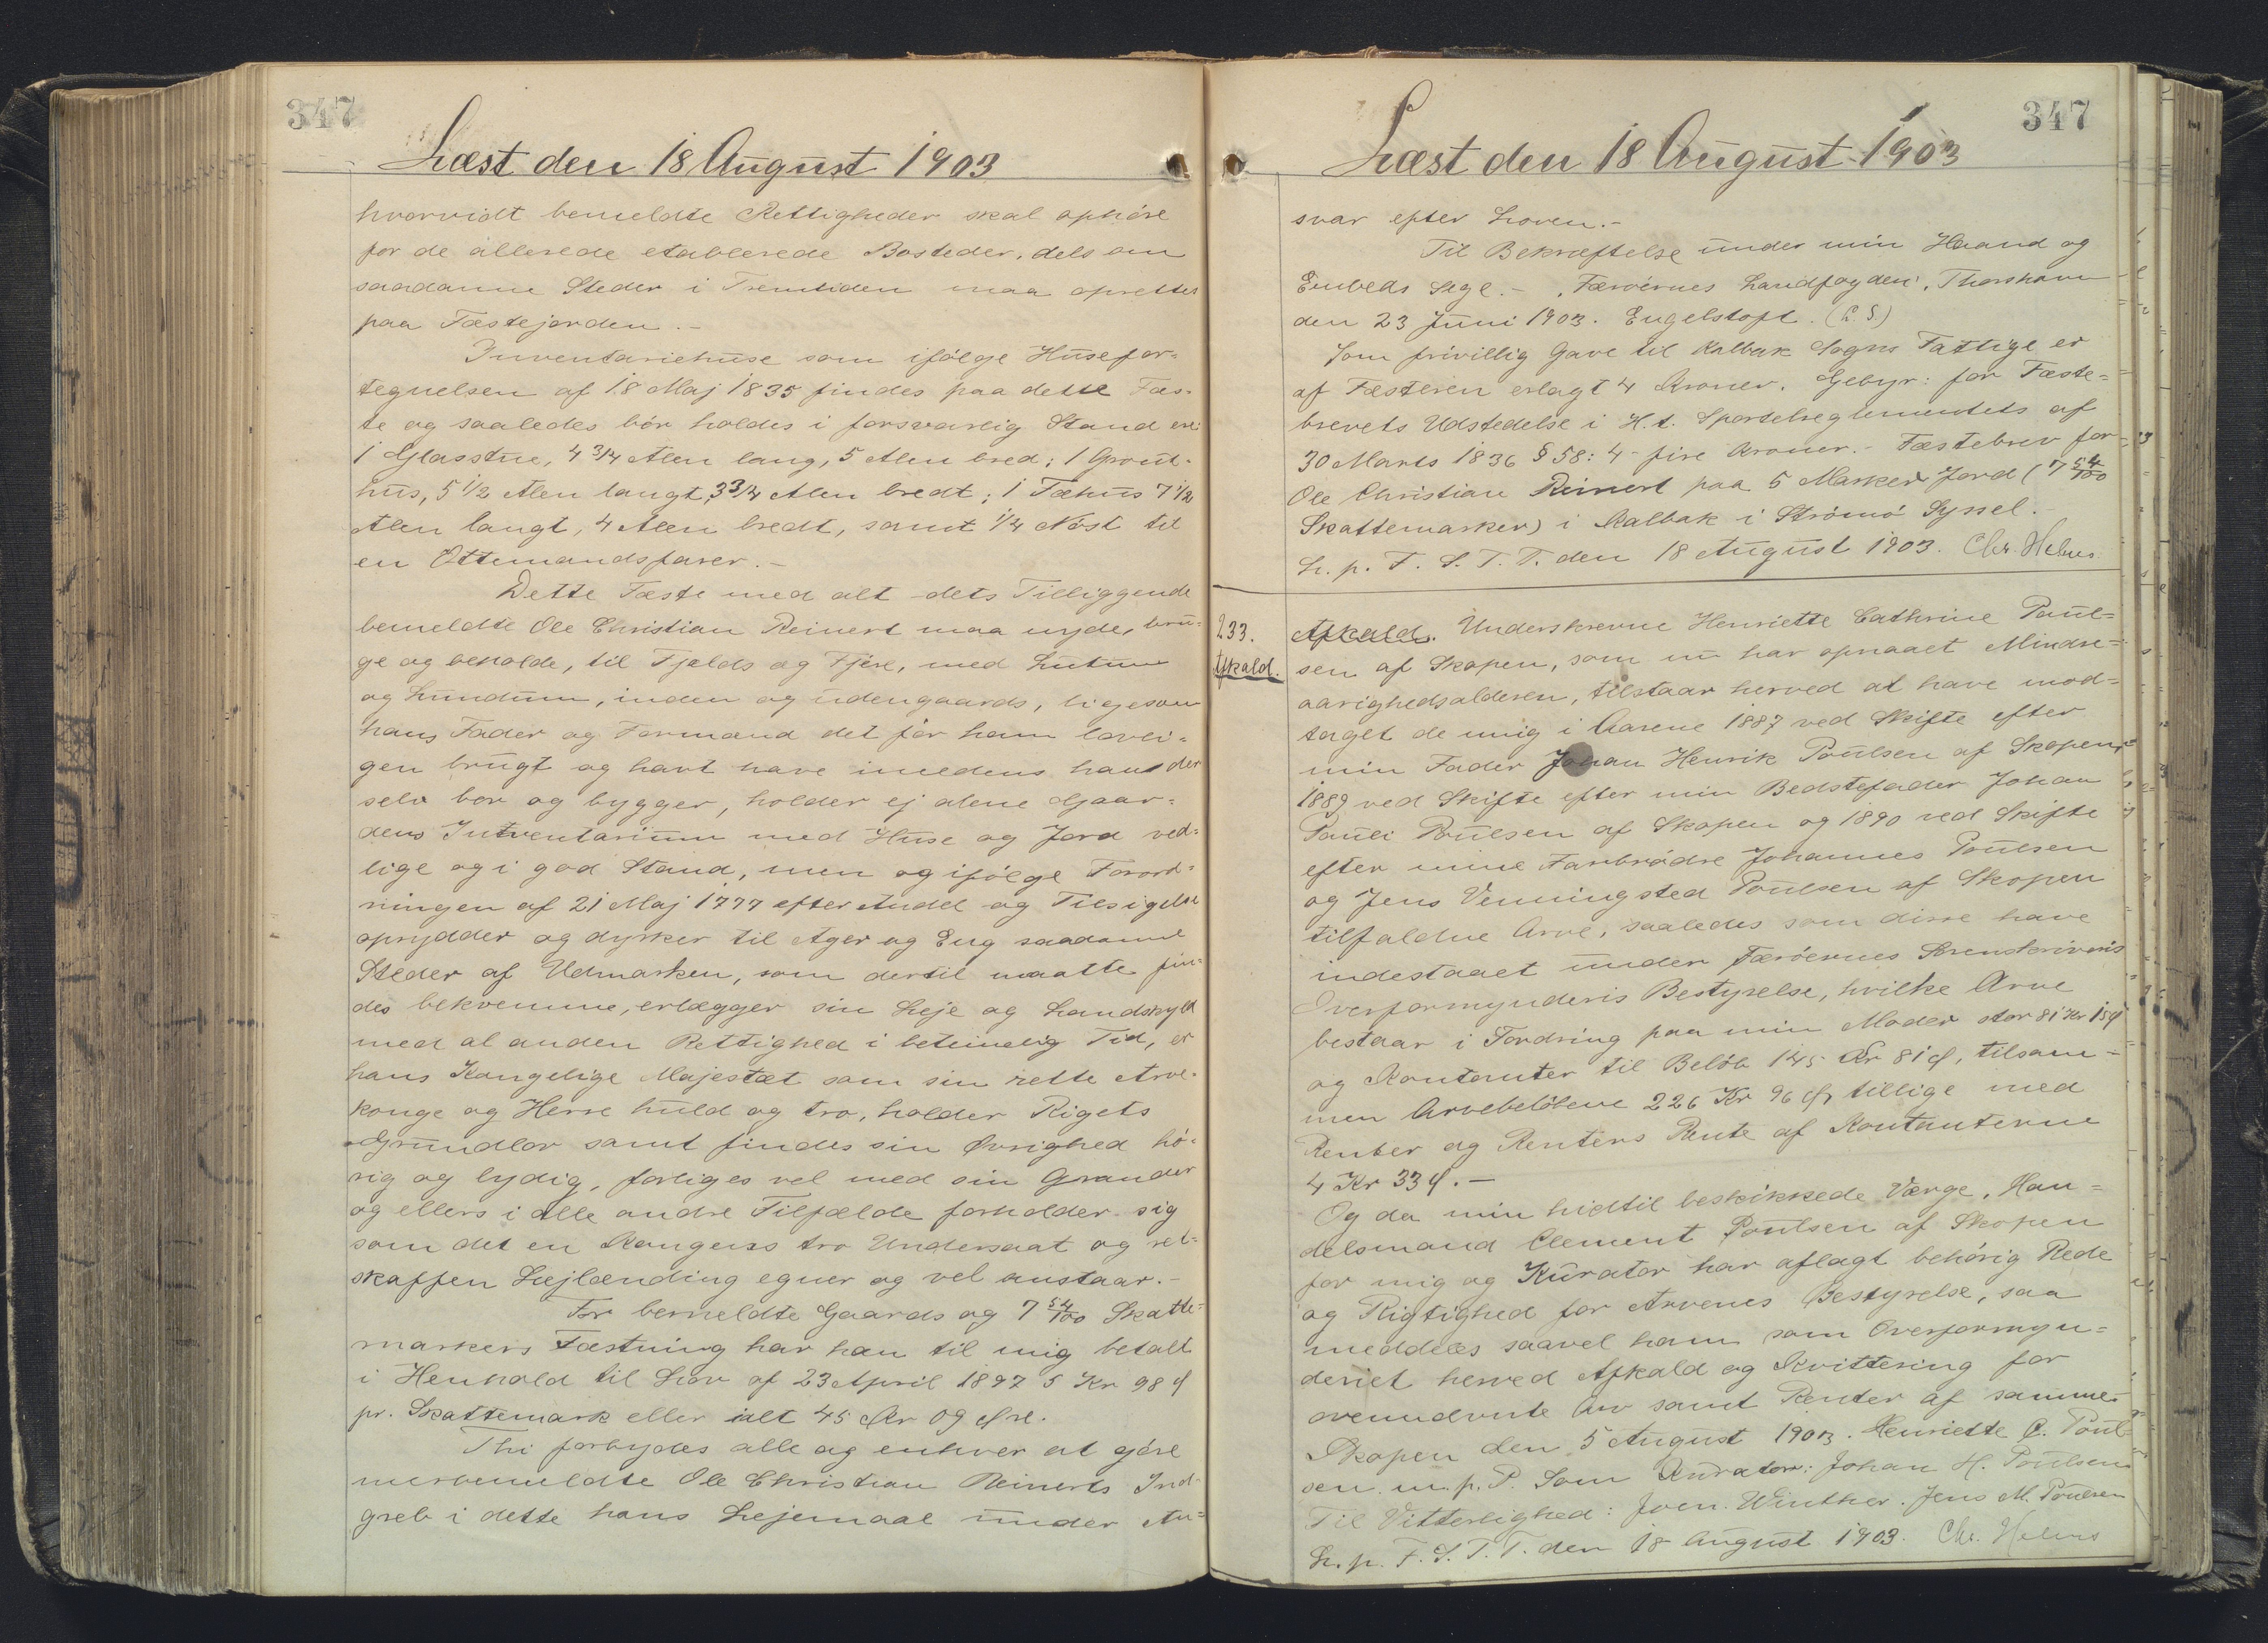 347
Læst den 18 August 1903
hvorvidt bemeldte Rettigheder skal ophöre
for de allerede etablerede Bosteder, dels om
saadanne Steder i Fremtiden maa oprettes
paa Fæstejorden.-
Inventariehuse som ifölge Husefor-
tegnelsen af 18 Maj 1835 findes paa dette Fæs-
te og saaledes bör holdes i forsvarlig Stand ere:
1 Glasstue, 4 3/4 Alen lang, 5 Alen bred; 1 Grout-
hus, 5 1/2 Alen langt, 3 3/4 Alen bredt; 1 Fæhus 7 1/2
Alen langt, 4 Alen bredt, samt 1/4 Nöst til
en Ottemandsfarer.-
Dette Fæste med alt dets Tilliggende
bemeldte Ole Christian Reinert maa nyde, bru-
ge og beholde, til Fjelds og Fjere, med Lutum
og Lundum, inden og udengaards, ligesom
hans Fader og Formand det för ham lovli-
gen brugt og havt have imedens han der
selv bor og bygger, holder ej alene Gaar-
dens Intventarium med Huse og Jord ved-
lige og i god Stand, men og ifölge Forord-
ningen af 21 Maj 1777 efter Andel og Tilsigelse
oprydder og dyrker til Ager og Eng saadanne
Steder af Udmarken, som dertil maatte fin-
des bekvemme, erlægger sin Leje og Landskyld
med al anden Rettighed i beteimelig Tid, er
hans Kongelige Majestæt som sin rette Arve-
konge og Herre huld og tro, holder Rigets
Grundlov samt findes sin Øvrighed hö-
rig og lydig, forliges vel med sin Grander
og ellers i alle andre Tilfælde forholder sig
som det en Kongens tro Undersaat og ret-
skaffen Lejlænding egner og vel anstaar.-
For bemeldte Gaards og 7 54/100 Skatte-
markers Fæstning har han til mig betalt
i Henhold til Lov af 23 April 1897 5 Kr 98 Ø
pr. Skattemark eller ialt 45 Kr 09 Øre.
Thi forbydes alle og enhver at gjöre
merbemeldte Ole Christian Reinerts Ind-
greb i dette hans Lejemaal under An-
347
Læst den 18 August 1903
svar efter Loven.-
Til Bekræftelse under min Haand og
Embeds Segl.- Færöernes Landfogderi, Thorshavn
den 23 Juni 1903. Engelstoft. (L.S.)
Som frivillig Gave til Kalbak Sogns Fattige er
af Fæsteren erlagt 4 Kroner. Gebyr: for Fæste-
brevets Udstedelse i H.t. Sportelreglementets af
30 Marts 1836 § 58: 4 - fire Kroner.- Fæstebrev for
Ole Christian Reinert paa 5 Marker Jord (7 54/100
Skattemarker) i Kalbak i Strömö Syssel.-
L. p. F. S. T. T. den 18 August 1903. Chr. Helms
233.
Afkald.
Afkald. Underskrevne Henriette Cathrine Poul-
sen af Skopen, som nu har opnaaet Mindre-
aarighedsalderen, tilstaar herved at have mod-
taget de mig i Aarene 1887 ved Skifte efter
min Fader Johan Henrik Poulsen af Skopen,
1889 ved Skifte efter min Bedstefader Johan
Pauli Poulsen af Skopen og 1890 ved Skifte
efter mine Farbrödre Johannes Poulsen
og Jens Venningsted Poulsen af Skopen
tilfaldne Arve, saaledes som disse have
indestaaet under Færöernes Sorenskriveris
Overformynderis Bestyrelse, hvilke Arve
bestaar i Fordring paa min Moder stor 81 Kr 15 Ø
og Kontanter til Belöb 145 Kr 81 Ø, tilsam-
men Arvebelöbene 226 Kr 96 Ø, tillige med
Renter og Renters Rente af Kontanterne
4 Kr 33 Ø.-
Og da min hidtil beskikkede Værge, Han-
delsmand Clement Poulsen af Skopen
for mig og Kurator har aflagt behörig Rede
og Rigtighed for Arvenes Bestyrelse, saa
meddeles saavel ham som Overformyn-
deriet herved Afkald og Kvittering for
ovennævnte Arv samt Renter af samme.
Skopen den 5 August 1903. Henriette C. Poul-
sen. m. p. P. Som Kurator: Johan H. Poulsen
Til Vitterlighed: Joen Winther. Jens M. Poulsen
L. p. F. S. T. T. den 18 August 1903. Chr. Helms